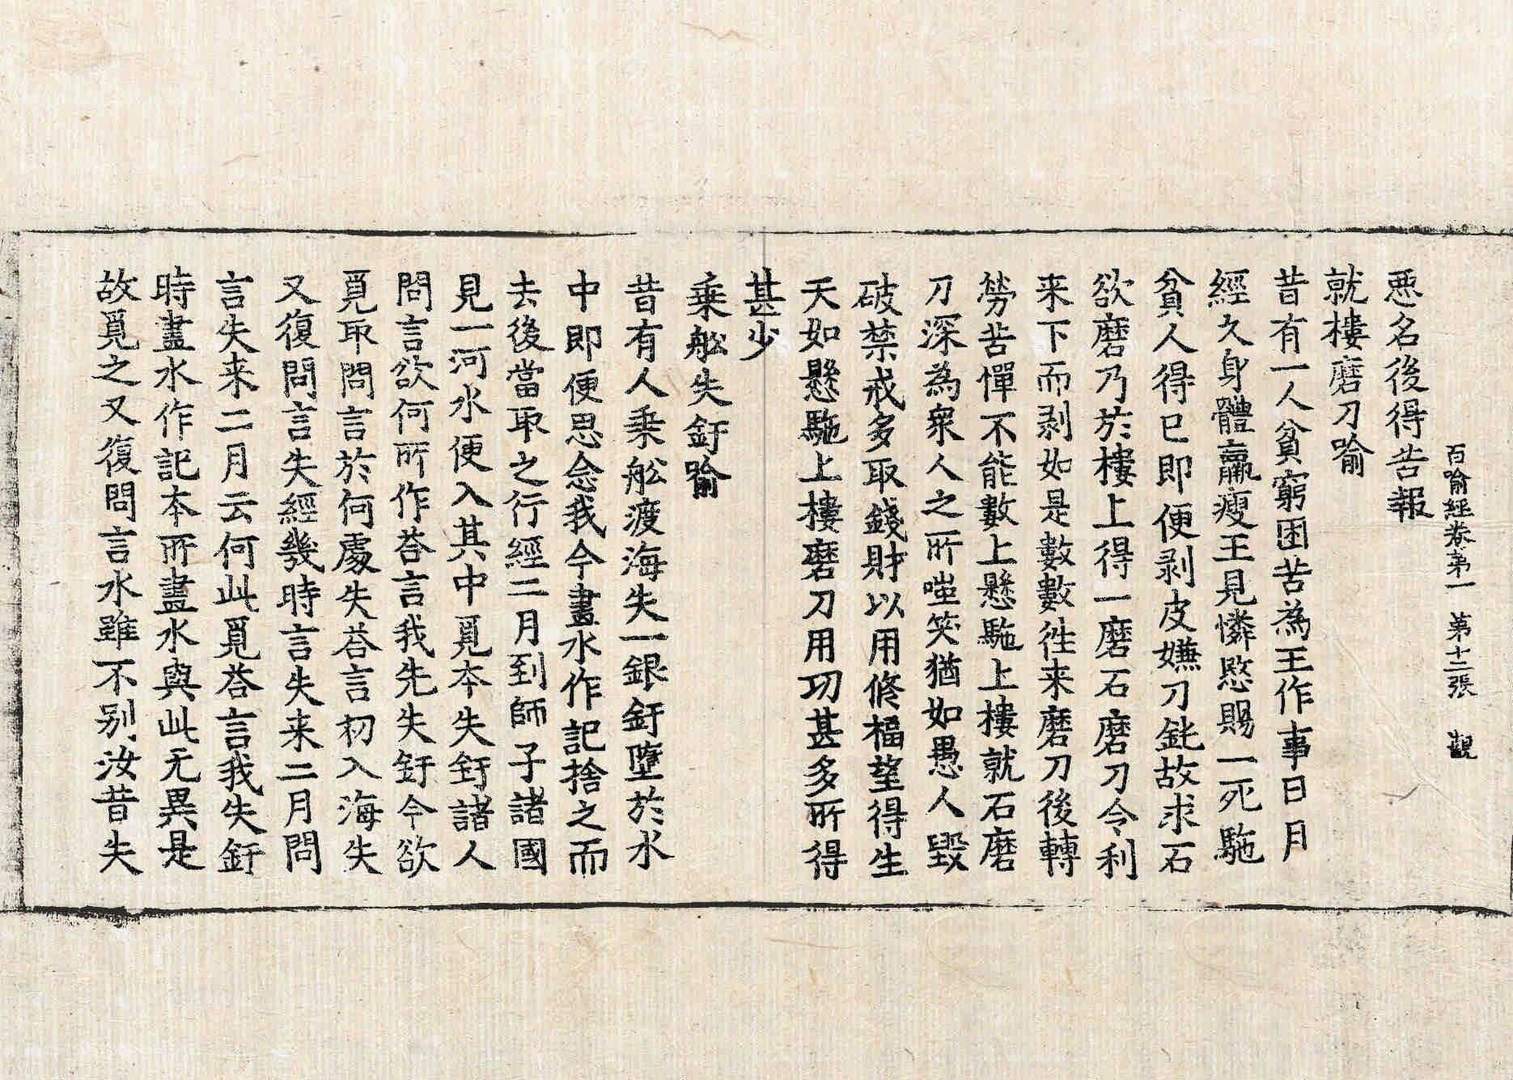 百喻經卷第一　第十二張　觀
惡名後得苦報
就樓磨刀喻
昔有一人貧窮困苦為王作事日月
經久身體羸瘦王見憐愍賜一死駞
貧人得已即便剥皮嫌刀鈍故求石
欲磨乃於樓上得一磨石磨刀令利
来下而剥如是數數徃来磨刀後轉
勞苦憚不能數上懸駞上樓就石磨
刀深為衆人之所嗤笑猶如愚人毀
破禁戒多取錢財以用修福望得生
天如懸駞上樓磨刀用功甚多所得
甚少
乗舩失釪喻
昔有人乗舩渡海失一銀釪墮於水
中即便思念我今畫水作記捨之而
去後當取之行經二月到師子諸國
見一河水便入其中覓本失釪諸人
問言欲何所作荅言我先失釪今欲
覓取問言於何處失荅言初入海失
又復問言失經幾時言失来二月問
言失来二月云何此覓荅言我失釪
時畫水作記本所畫水與此无異是
故覓之又復問言水雖不別汝昔失